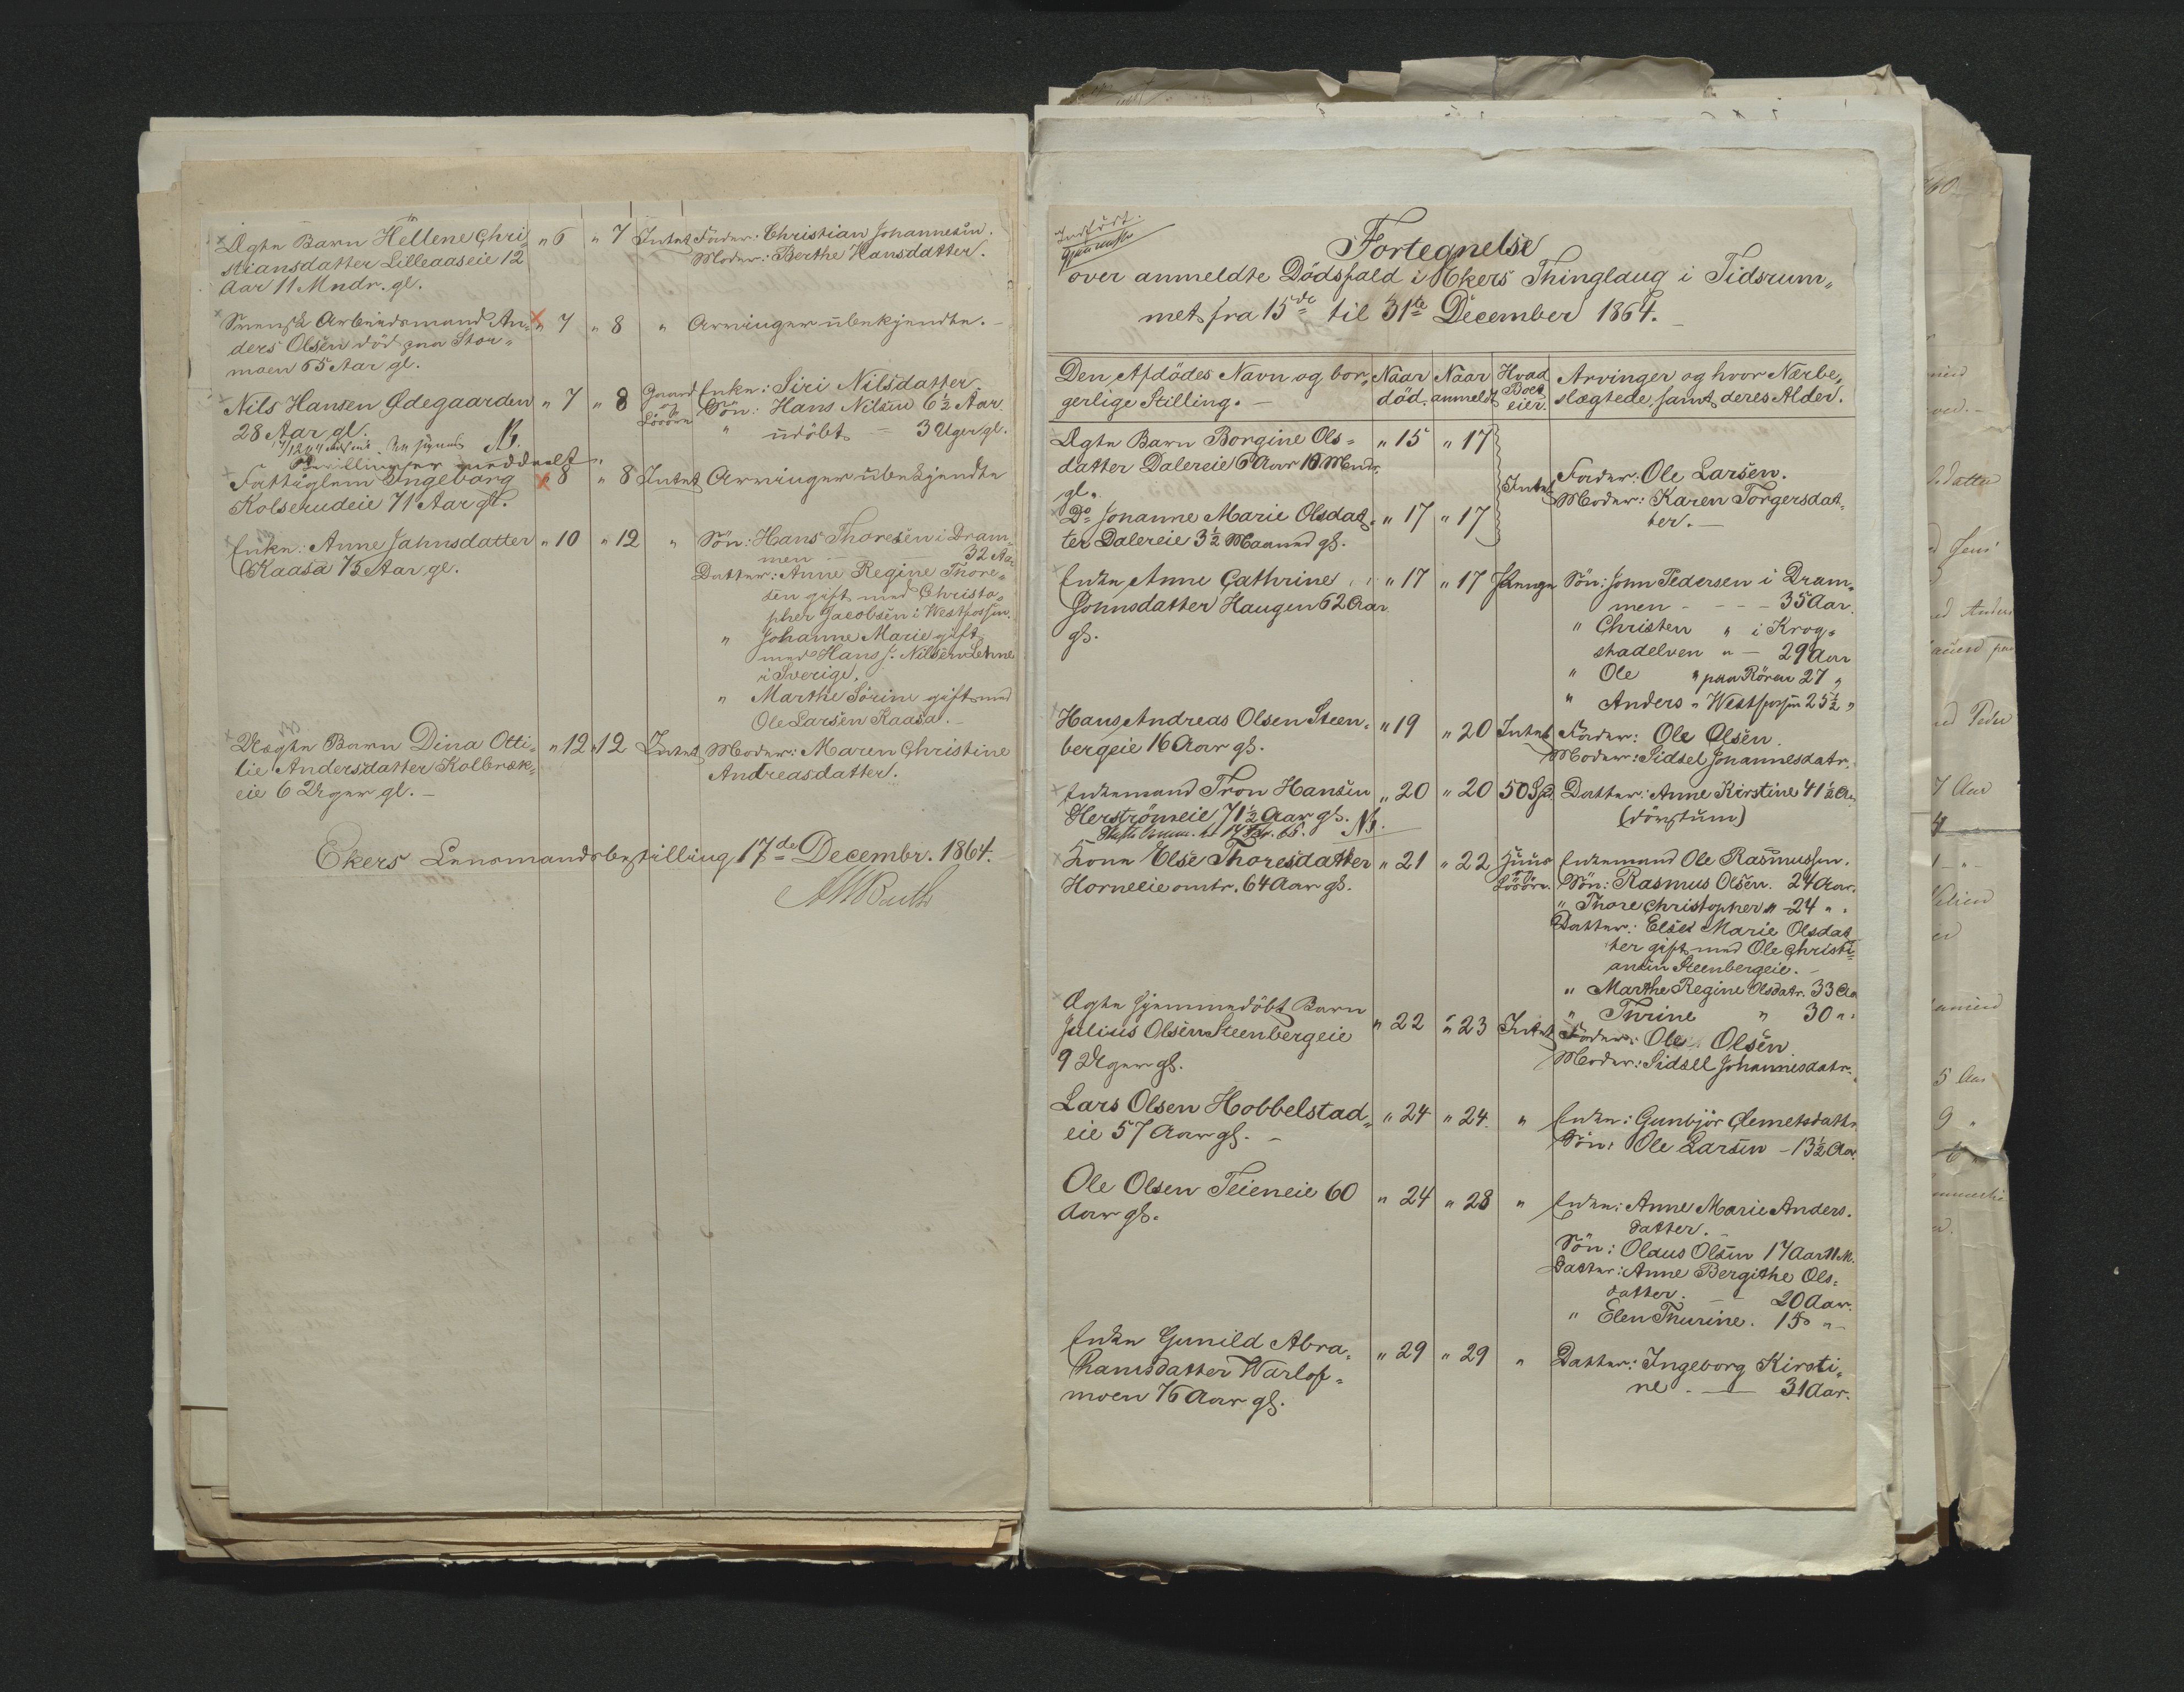 Ægte Barn Hellene Chri-
stiansdatter Lilleaaseie 12
Aar 11 Mndr. gl.
" 6 " 7 Intet
Fader: Christian Johannesen.
Moder: Berthe Hansdatter.
Svensk Arbeidsmand An-
ders Olsen död paa Stor-
moen 65 Aar gl.
" 7 " 8 "
Arvinger ubekjendte.
Nils Hansen Ødegaarden
28 Aar gl.
" 7 " 8 Gaard
og
Løsøre
Enke: Siri Nilsdatter.
Sön: Hans Nilsen 6½ Aar.
" udöbt — 3 Uger gl.
Fattiglem Ingeborg
Kolserudeie 71 Aar gl.
" 8 " 8 Intet Arvinger ubekjendte
Enke: Anne Jahnsdatter
Kaasa 75 Aar gl.
" 10 " 12 "
Sön: Hans Thoresen i Dram-
men — 32 Aar
Datter: Anne Regine Thore-
sen gift med Christo-
pher Jacobsen i Westfossen.
" Johanne Marie gift
med Hans J. Nilsen Lehne
i Sverige.
" Marthe Sörine gift med
Ole Larsen Kaasa.
Uægte Barn Dina Otti-
lie Andersdatter Kolbræk-
eie 6 Uger gl. —
" 12 " 12 Intet
Moder: Maren Christine
Andreasdatter.
Ekers Lensmandsbestilling 17de Decembr. 1864.
Indført.
Fortegnelse
over anmeldte Dödsfald i Ekers Thinglaug i Tidsrum-
met fra 15de til 31te December 1864.
Den Afdödes Navn og bor-
gerlige Stilling. —
Naar
död.
Naar
anmeldt
Hvad
Boet
eier.
Arvinger og hvor Nærbe-
slægtede, samt deres Alder.
Ægte Barn Borgine Ols-
datter Dalereie 6 Aar 10 Mndr.
gl.
" 15 " 17
Do Johanne Marie Olsdat-
ter Dalereie 3½ Maaned gl.
" 17 " 17
Intet
Fader: Ole Larsen.
Moder: Karen Torgersdat-
ter. —
Enke Anne Cathrine
Johnsdatter Haugen 62 Aar
gl.
" 17 " 17 Penge
Sön: John Pedersen i Dram-
men - - - 35 Aar.
" Christen " i Krog-
stadelven " — 29 Aar
" Ole " paa Rören 27 "
" Anders " Westfossen 25½ "
Hans Andreas Olsen Steen-
bergeie 16 Aar gl.
" 19 " 20 Intet
Fader: Ole Olsen.
Moder: Sidsel Johannesdatr.
Enkemand Tron Hansen
Herströmeie 71½ Aar gl.
" 20 " 20 50 Spd.
Datter: Anne Kirstine 41½ Aar
(dövstum)
Kone Else Thoresdatter
Horneeie omtr. 64 Aar gl.
" 21 " 22 Huus
og
Løsøre.
Enkemand Ole Rasmussen.
Sön: Rasmus Olsen. 24 Aar.
" Thore Christopher " 24 "
Datter: Elise Marie Olsdat-
ter gift med Ole Christi-
ansen Steenbergeie. —
" Marthe Regine Olsdatr. 33 Aar
" Thrine " 30 "
Ægte hjemmedöbt Barn
Julius Olsen Steenbergeie
9 Uger gl.
" 22 " 23 Intet
Fader: Ole Olsen.
Moder: Sidsel Johannesdatr.
Lars Olsen Hobbelstad-
eie 57 Aar gl. —
" 24 " 24 "
Enke: Gunbjör Clemetsdatter
Sön: Ole Larsen — 13½ Aar.
Ole Olsen Teieneie 60
Aar gl.
" 24 " 28 "
Enke: Anne Marie Anders-
datter.
Sön: Olaus Olsen 17 Aar 11 M.
Datter: Anne Bergithe Ols-
datter. — 20 Aar.
" Elen Thurine. 15 "
Enke Gunild Abra-
hamsdatter Warlof-
moen 76 Aar gl.
" 29 " 29 "
Datter: Ingeborg Kirsti-
ne. — 31 Aar.